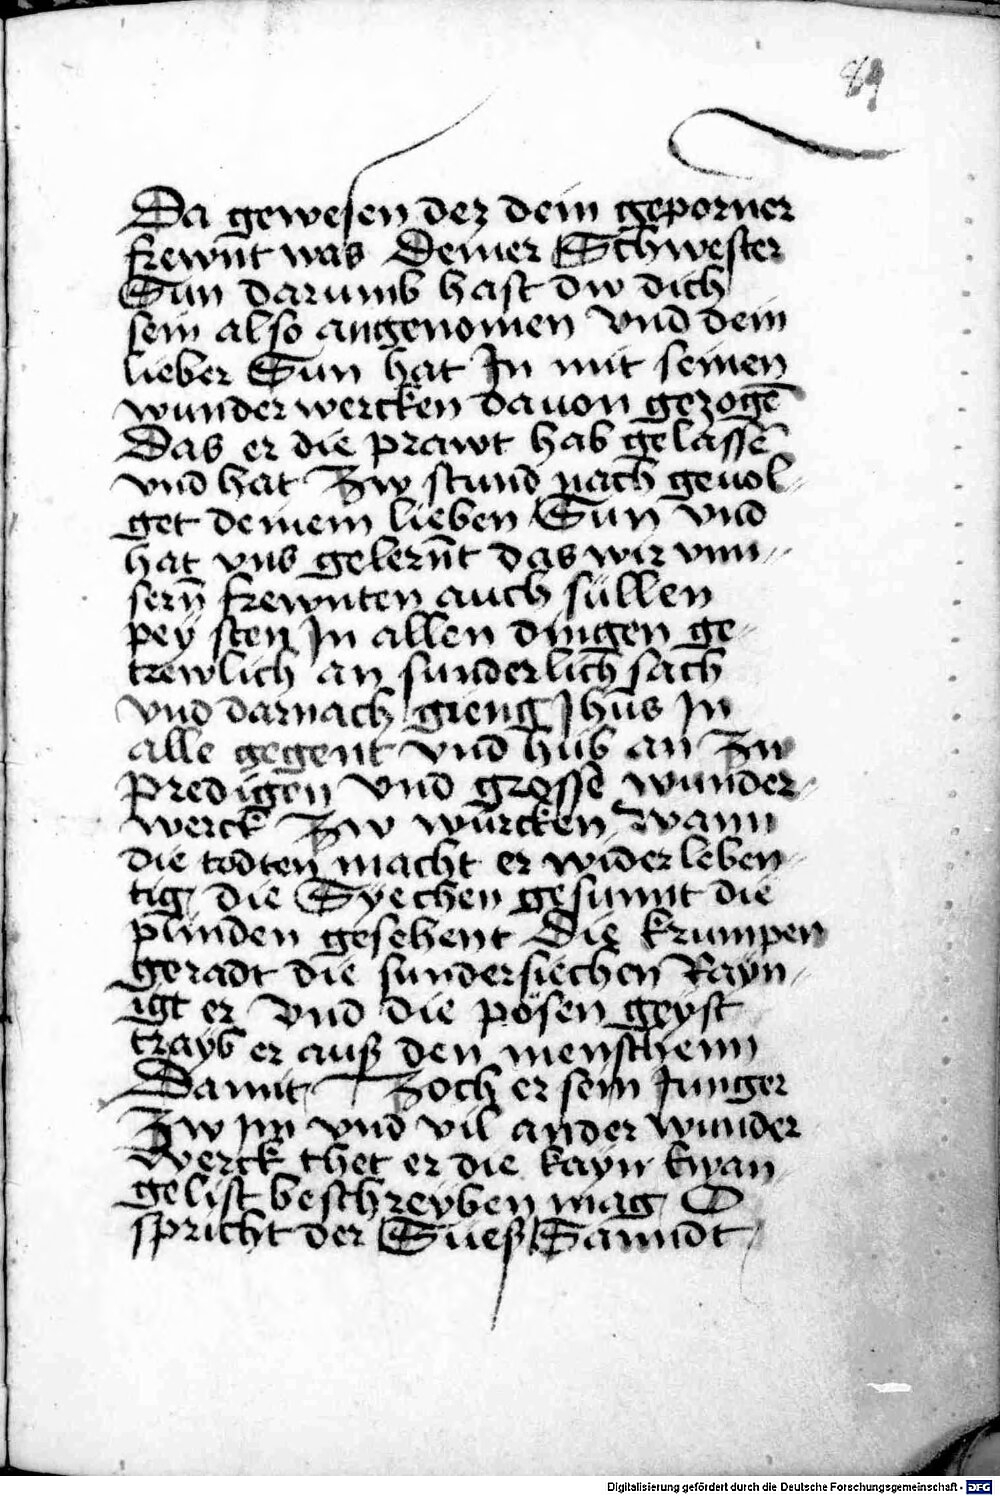 84
Da gewesen der dein geporner
frewnt was Deiner Schwester
Sun darumb hast dw dich
sein also angenomen vnd dein
lieber Sun hat Jn mit seinen
wunder wercken dauon gezogē
Das er die prawt hab gelassē
vnd hat Zw stund nach geuol-
get deinem lieben Sun vnd
hat vns gelernt das wir vnn-
sern frewnten auch süllen
pey sten Jn allen dingen ge-
trewlich an sunderlich sach
vnd darnach gieng Jhūs Jn
alle gegent vnd hub an Zw
predigen vnd grosse wunder-
werck Zw würcken wann
die todten macht er wider leben-
tig die Syechen gesunnt die
plinden gesehent Die krumpen
geradt die sundersiechen Rayn-
igt er vnd die pösen geyst
trayb er auß den menschenn
Damit Zoch er sein Junger
Zw im vnd vil ander wunder
werck thet er die kayn Ewan
gelist beschreyben mag O
spricht der Sueß Sanndt
Digitalisierung gefördert durch die Deutsche Forschungsgemeinschaft - DFG